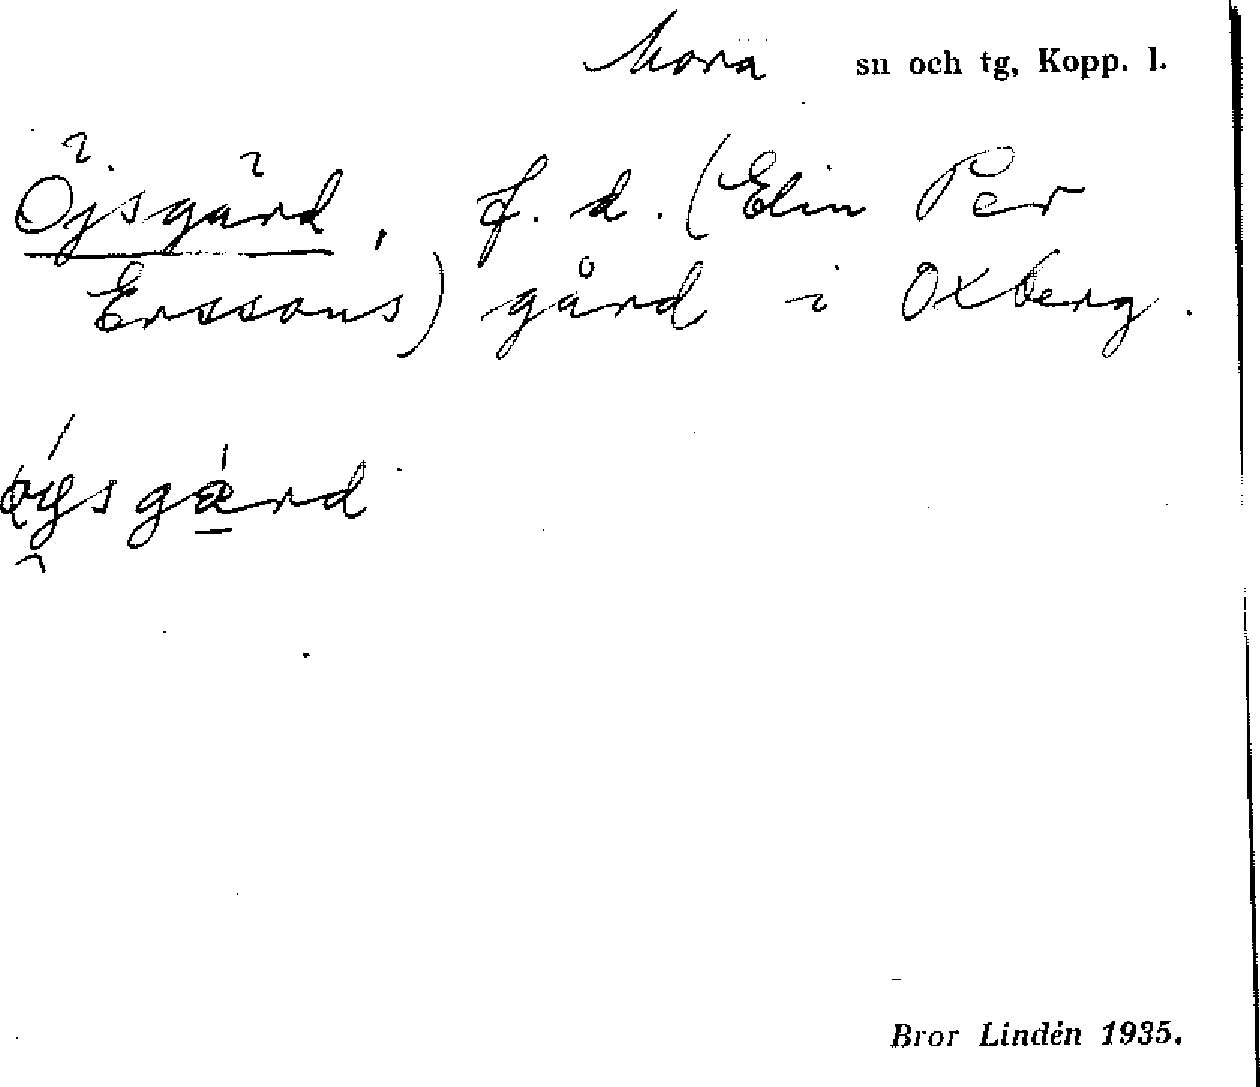 Mora sn och tg, Kopp. l.
Öjsgård, f. d. (Elin Per
Erssons) gård i Oxberg.
Bror Lindén 1935.